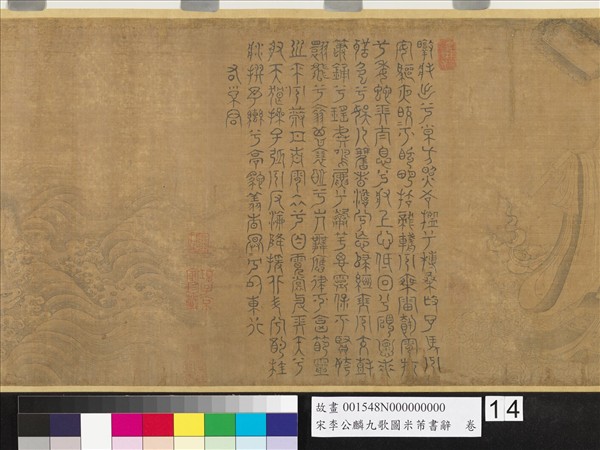 暾將出兮東方照吾檻兮扶桑撫余馬兮
安驅夜皎皎兮既明駕龍輈兮乘雷載雲旗
兮委蛇長太息兮將上心低回兮顧懷羌
聲色兮娛人觀者憺兮忘歸緪瑟兮交鼓
簫鍾兮瑤簴鳴篪兮吹竽思靈保兮賢姱
翾飛兮翠曾展詩兮會舞應律兮合節靈
之來兮蔽日青雲衣兮白霓裳舉長矢兮
射天狼操余弧兮反淪降援北斗兮酌桂
漿撰余轡兮高馳翔杳冥冥兮以東行
右東君
故畫 001548N000000000
宋李公麟九歌圖米芾書辭 卷
14